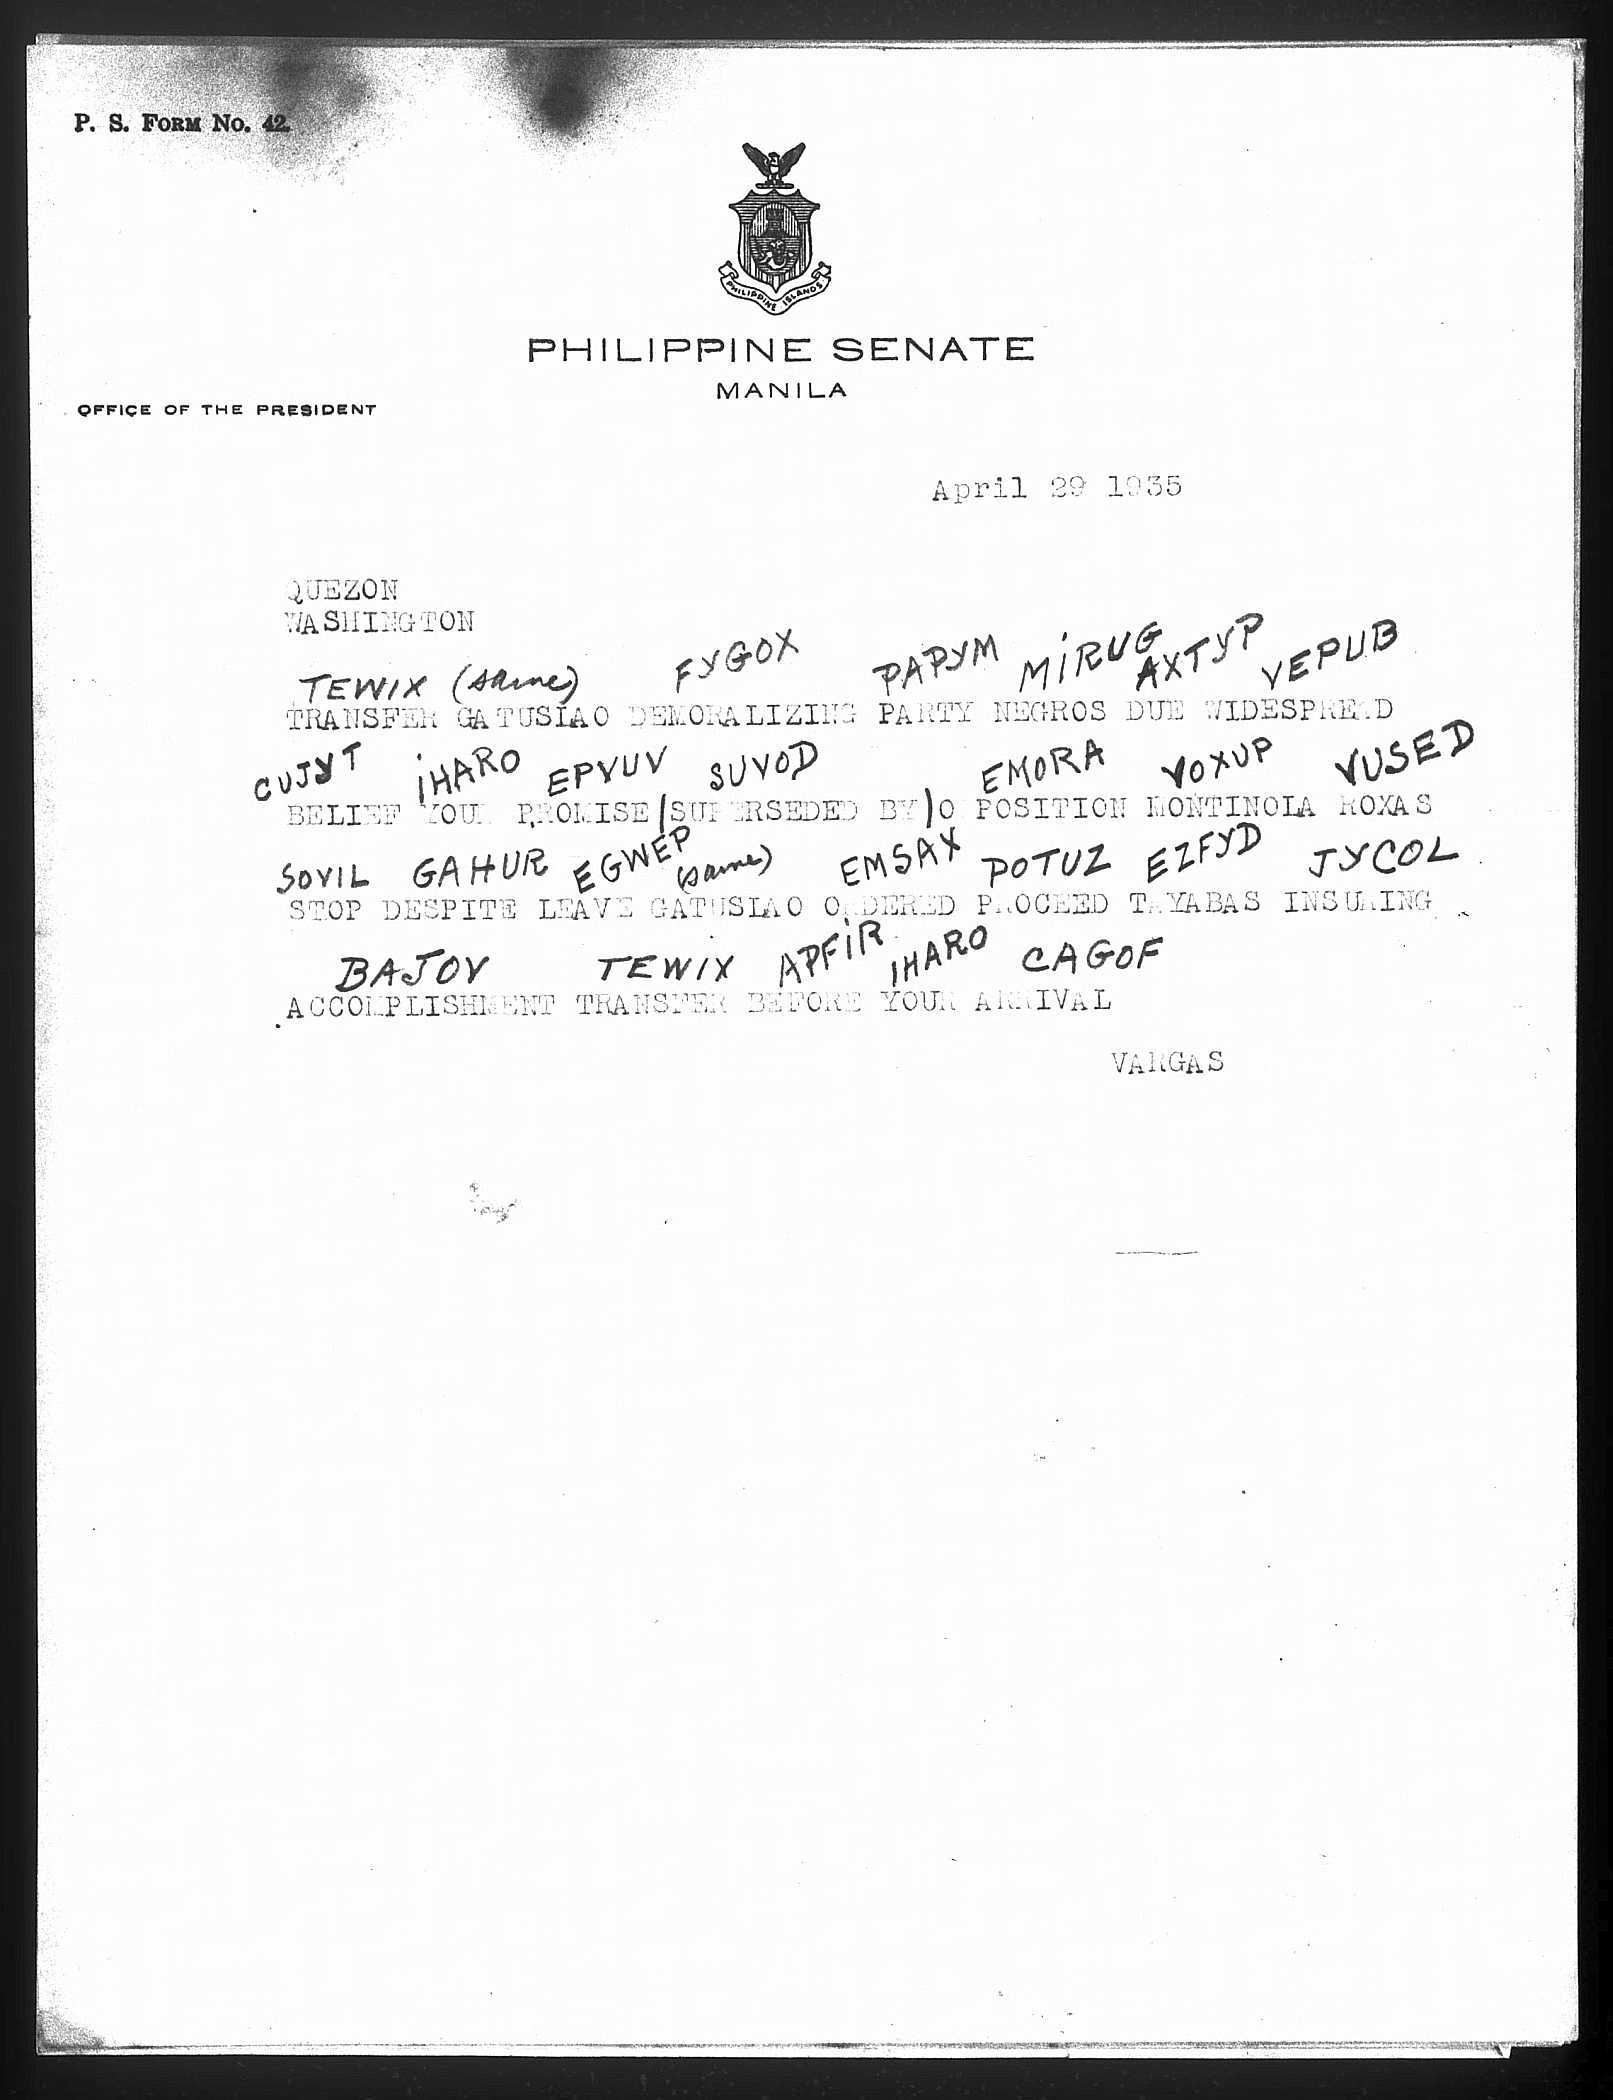 P. S. FORM No. 42
PHILIPPINE ISLANDS
PHILIPPINE SENATE
MANILA
OFFICE OF THE PRESIDENT
April 29 1935
QUEZON
WASHINGTON
TEWIX (same) FYGOX PAPYM MIRUG AXTYP VEPUB
TRANSFER GATUSIAO DEMORALIZING PARTY NEGROS DUE WIDESPREAD
CUJYT IHARO EPVUV SUVOD EMORA VOXUP VUSED
BELIEF YOUR PROMISE (SUPERSEDED BY) O POSITION MONTINOLA ROXAS
SOVIL GAHUR EGWEP (same) EMSAX POTUZ EZFYD JYCOL
STOP DESPITE LEAVE GATUSIAO ORDERED PROCEED TAYABAS INSURING
BAJOV TEWIX APFIR IHARO CAGOF
ACCOMPLISHMENT TRANSFER BEFORE YOUR ARRIVAL
VARGAS